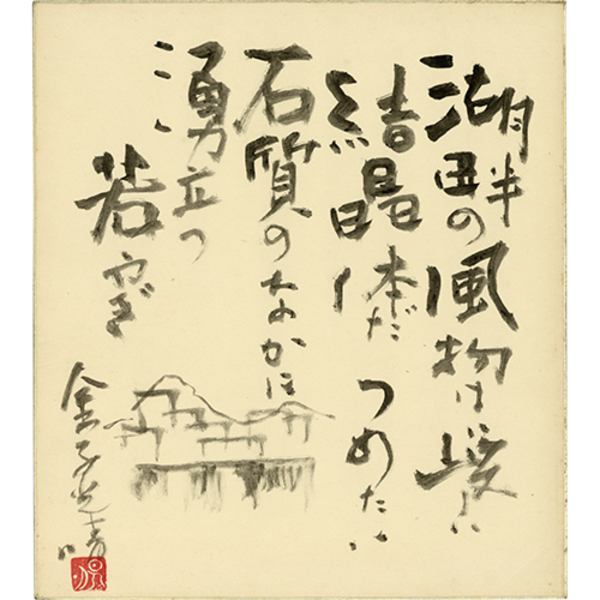 湖畔の風物は峻い
結晶体だ つめたい
石質のなかに
湧立つ
若やぎ
金子光晴